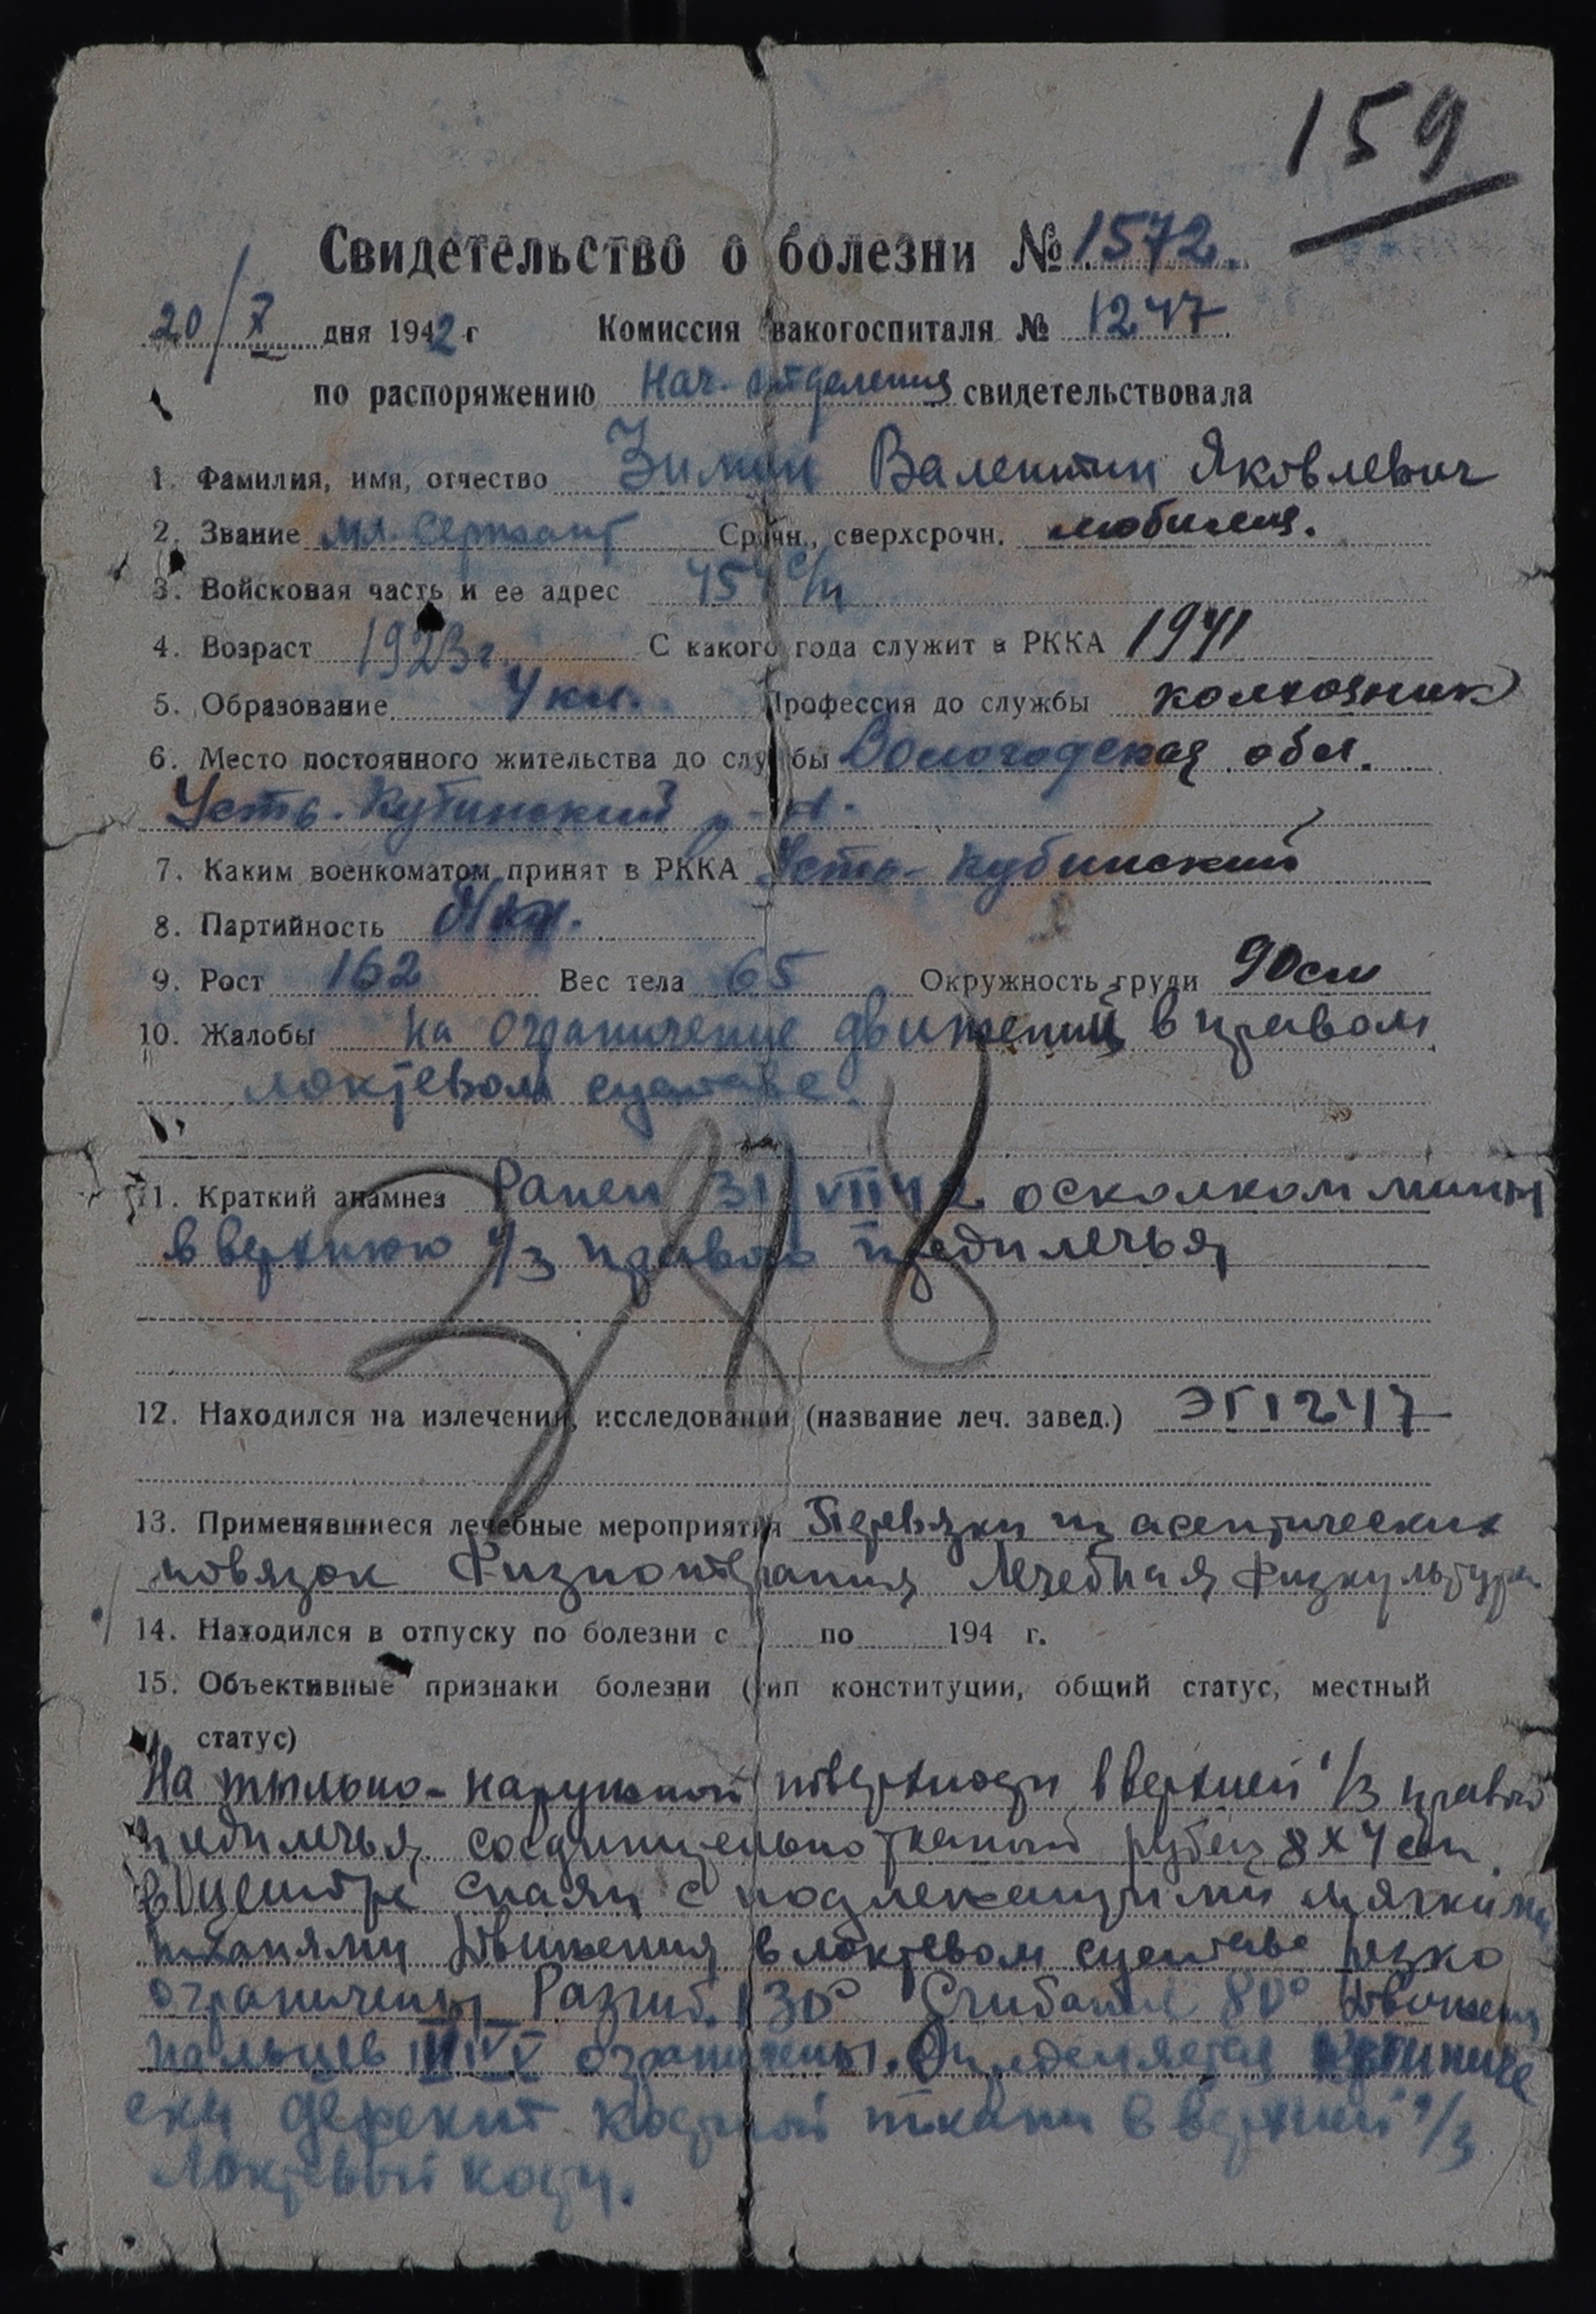 159
Свидетельство о болезни № 1572.
20/X дня 1942 г Комиссия эвакогоспиталя № 1247
по распоряжению Нач. отделения свидетельствовала
1. Фамилия, имя, отчество Зимин Валентин Яковлевич
2. Звание мл. сержант Срочн., сверхсрочн. мобилиз.
3. Войсковая часть и ее адрес 454 с/п
4. Возраст 1923 г. С какого года служит в РККА 1941
5. Образование 4 кл. Профессия до службы колхозник
6. Место постоянного жительства до службы Вологодская обл.
Усть-Кубинский р-н.
7. Каким военкоматом принят в РККА Усть-Кубинский
8. Партийность
9. Рост 162 Вес тела 65 Окружность груди 90 см
10. Жалобы на ограничение движений в правом
локтевом суставе.
318
11. Краткий анамнез Ранен 31/VII 42 осколком мины
в верхнюю 1/3 правого предплечья
12. Находился на излечении, исследовании (название леч. завед.) ЭГ 1247
13. Применявшиеся лечебные мероприятия Перевязки из асептических
повязок Физиотерапия Лечебная физкультура
14. Находился в отпуску по болезни с по 194 г.
15. Объективные признаки болезни (тип конституции, общий статус, местный
статус)
На тыльно-наружной поверхности в верхней 1/3 правого
предплечья соединительнотканый рубец 8х4 см.
в центре спаян с подлежащими мягкими
тканями Движения в локтевом суставе резко
ограничены Разгиб. 130° Сгибание 80° Движения
пальцев III IV V ограничены. Определяется
ски дефект костной ткани в верхней 1/3
локтевой кости.